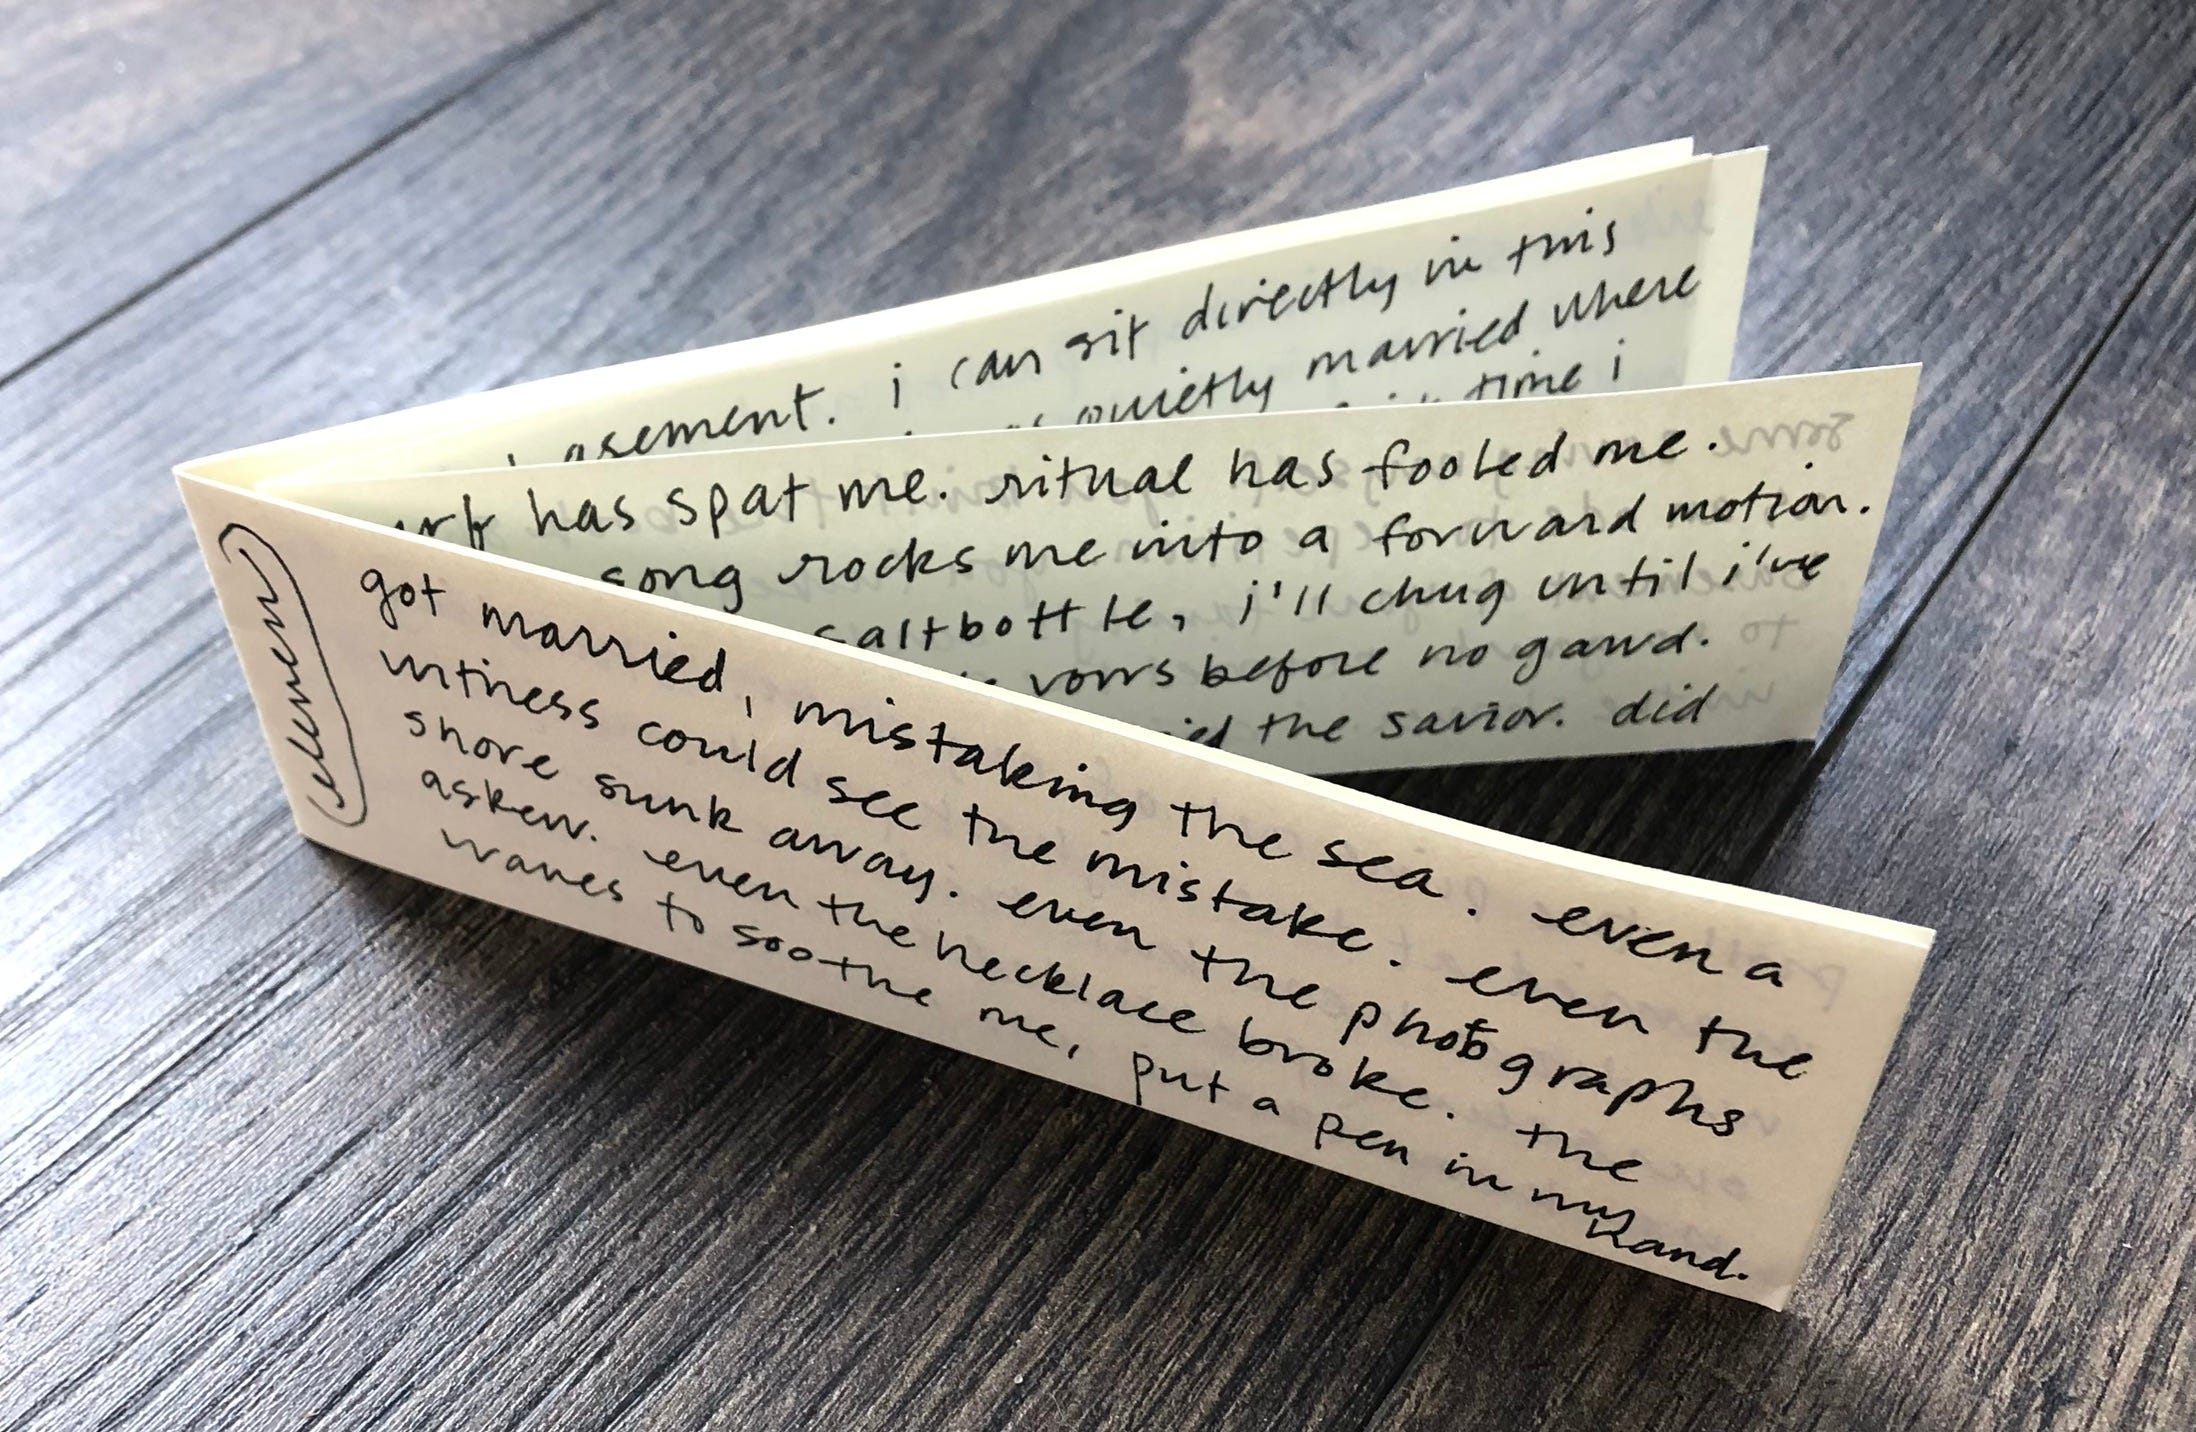 eleven
got married, mistaking the sea. even a
witness could see the mistake. even the
shore sunk away. even the photographs
askew. even the necklace broke. the
waves to soothe me, put a pen in my hand.
has spat me. ritual has fooled me.
song rocks me into a forward motion.
saltbottle, i'll chug until i've
vows before no gawd.
the savior. did
i can sit directly in this
quietly married where
time i